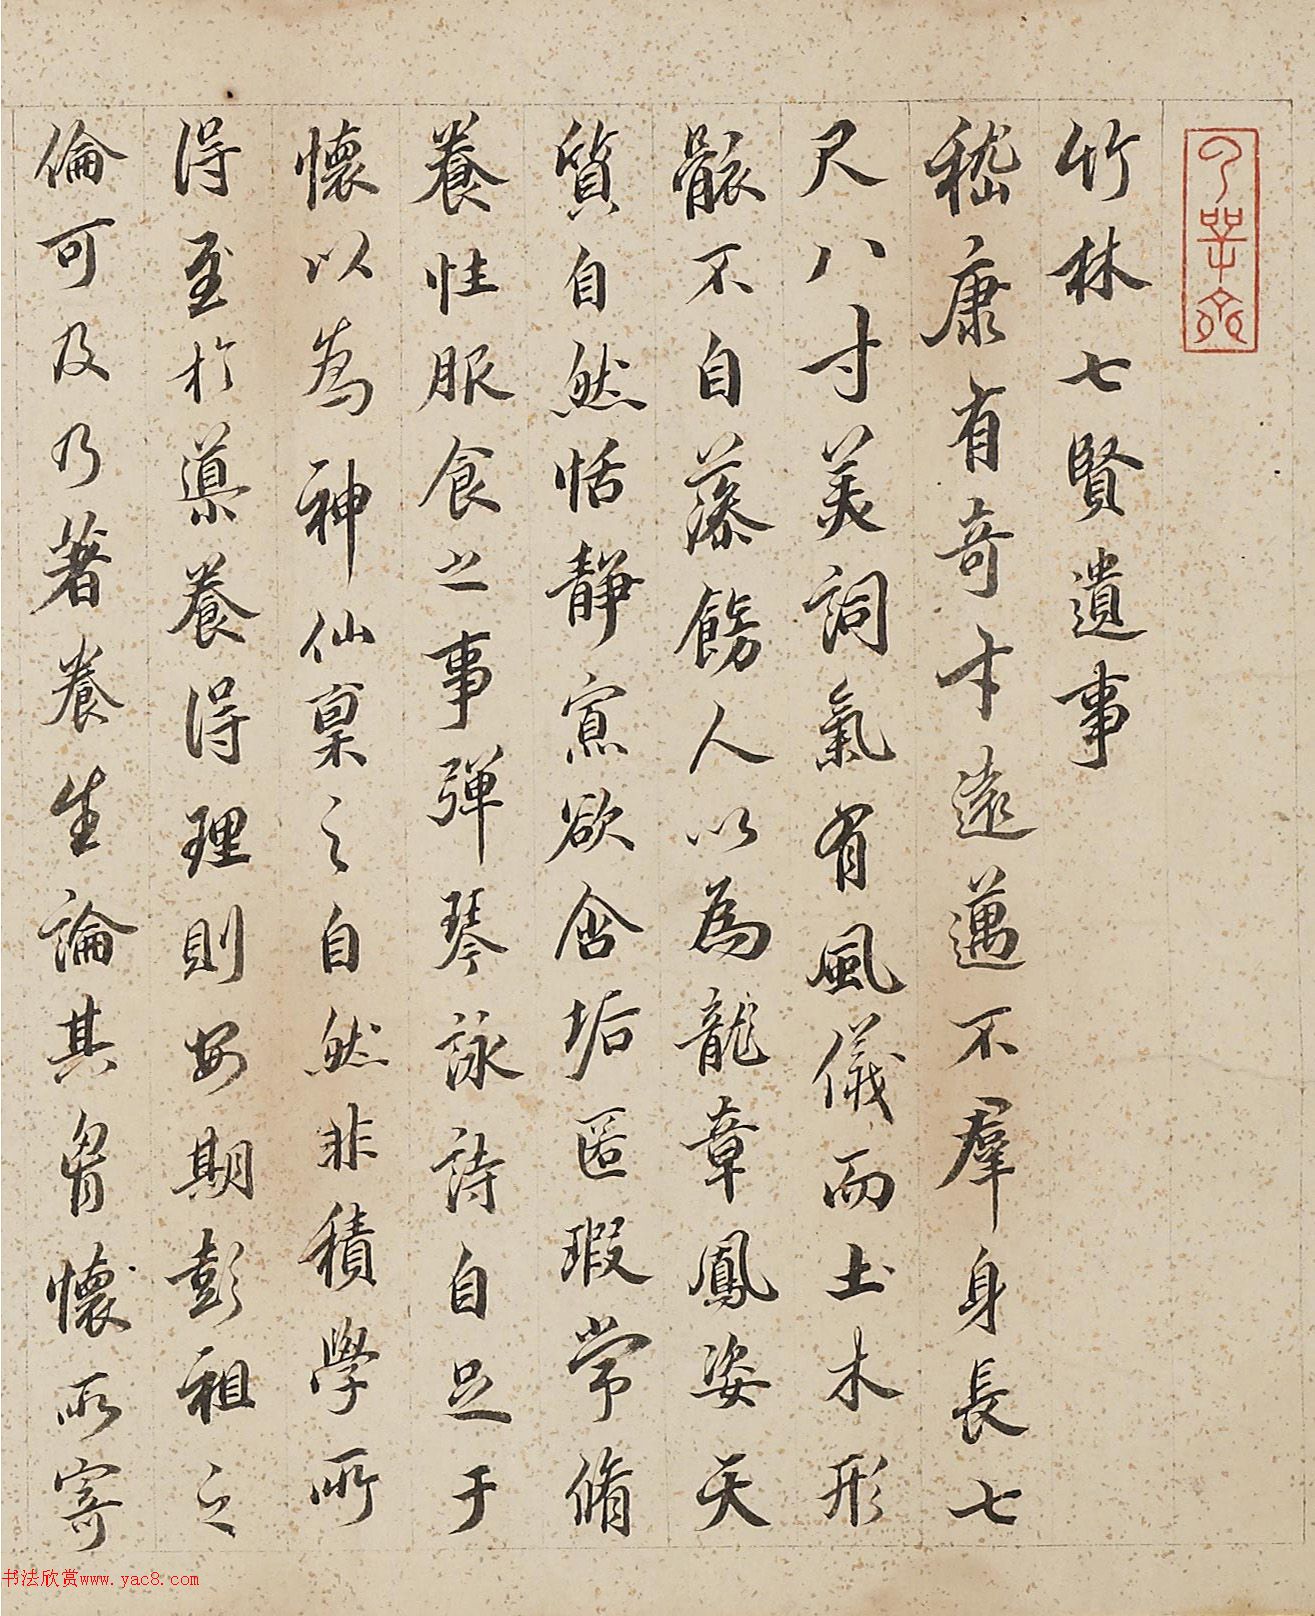 竹林七賢遺事
嵇康有奇才遠邁不羣身長七
尺八寸美詞氣有風儀而土木形
骸不自藻飾人以為龍章鳳姿天
質自然恬靜寡欲含垢匿瑕常脩
養性服食之事彈琴詠詩自足于
懷以為神仙稟之自然非積學所
得至於導養得理則安期彭祖之
倫可及乃著養生論其胷懷所寄
书法欣赏www.yac8.com